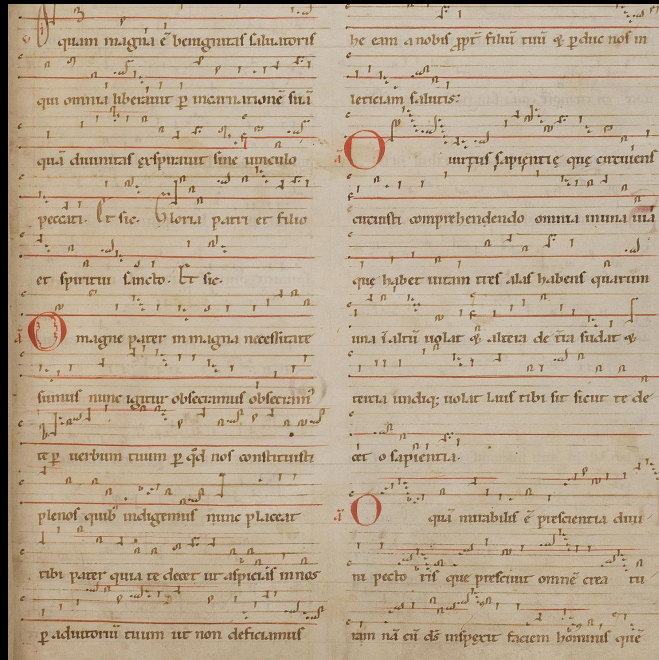 quam magna ē benignitas saluatoris
qui omnia liberauit ꝑ incarnationē suā
quā diuinitas exspirauit sine uinculo
peccati. Et sic. Gloria patri et filio
et spiritui sancto. Et sic.
O magne pater in magna necessitate
sumus nunc igitur obsecramus obsecram᷒
te ꝑ uerbum tuum ꝑ qd nos constituisti
plenos quib᷒ indigemus nunc placeat
tibi pater quia te decet ut aspicias in nos
ꝑ adiutoriū tuum ut non deficiamus
be eam a nobis ꝓpt̄ filiū tuū & ꝑduc nos in
leticiam salutis:
O uirtus sapientię quę circuiens
circuisti comprehendendo omnia in una uia
que habet uitam tres alas habens quarum
una ī altū uolat & altera de t̄ra sudat &
tercia undiq; uolat Laus tibi sit sicut te de
cet o sapientia.
O quā mirabilis ē prescientia diui
ni pecto ris que presciuit omnē crea tu
ram nā cū ds̄ inspexit faciem hominis quē